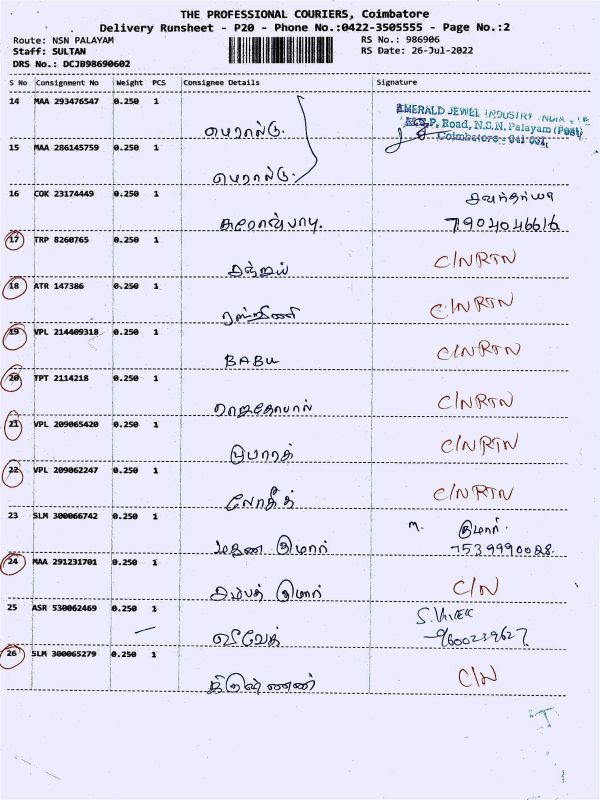 THE PROFESSIONAL COURIERS, Coimbatore
Delivery Runsheet - P20 - Phone No.:0422-3505555 - Page No.:2
Route: NSN PALAYAM RS No.: 986906
Staff: SULTAN RS Date: 26-Jul-2022
DRS No.: DCJB98690602
S No Consignment No Weight PCS Consignee Details Signature
14 MAA 293476547 0.250 1
EMERALD JEWEL INDUSTRY INDIA
Road, N.S.N. Palayam (Post)
எமரால்டு. Coimbatore - 641 031.
15 MAA 286145759 0.250 1
எமரால்டு.
16 COK 23174449 0.250 1
7904046616
17 TRP 8260765 0.250 1
C/NRTN
18 ATR 147386 0.250 1
C/NRTN
19 VPL 214409318 0.250 1
BABU C/NRTN
20 TPT 2114218 0.250 1
ராஜகோபால் C/NRTN
21 VPL 209065420 0.250 1
C/NRTN
22 VPL 209062247 0.250 1
C/NRTN
23 SLM 300066742 0.250 1 M. குமார்.
குமார் 7539990028.
24 MAA 291231701 0.250 1
சம்பத் குமார் C/N
25 ASR 530062469 0.250 1 S. VIVEK
விவேக் 9600239627
26 SLM 300065279 0.250 1
C/N